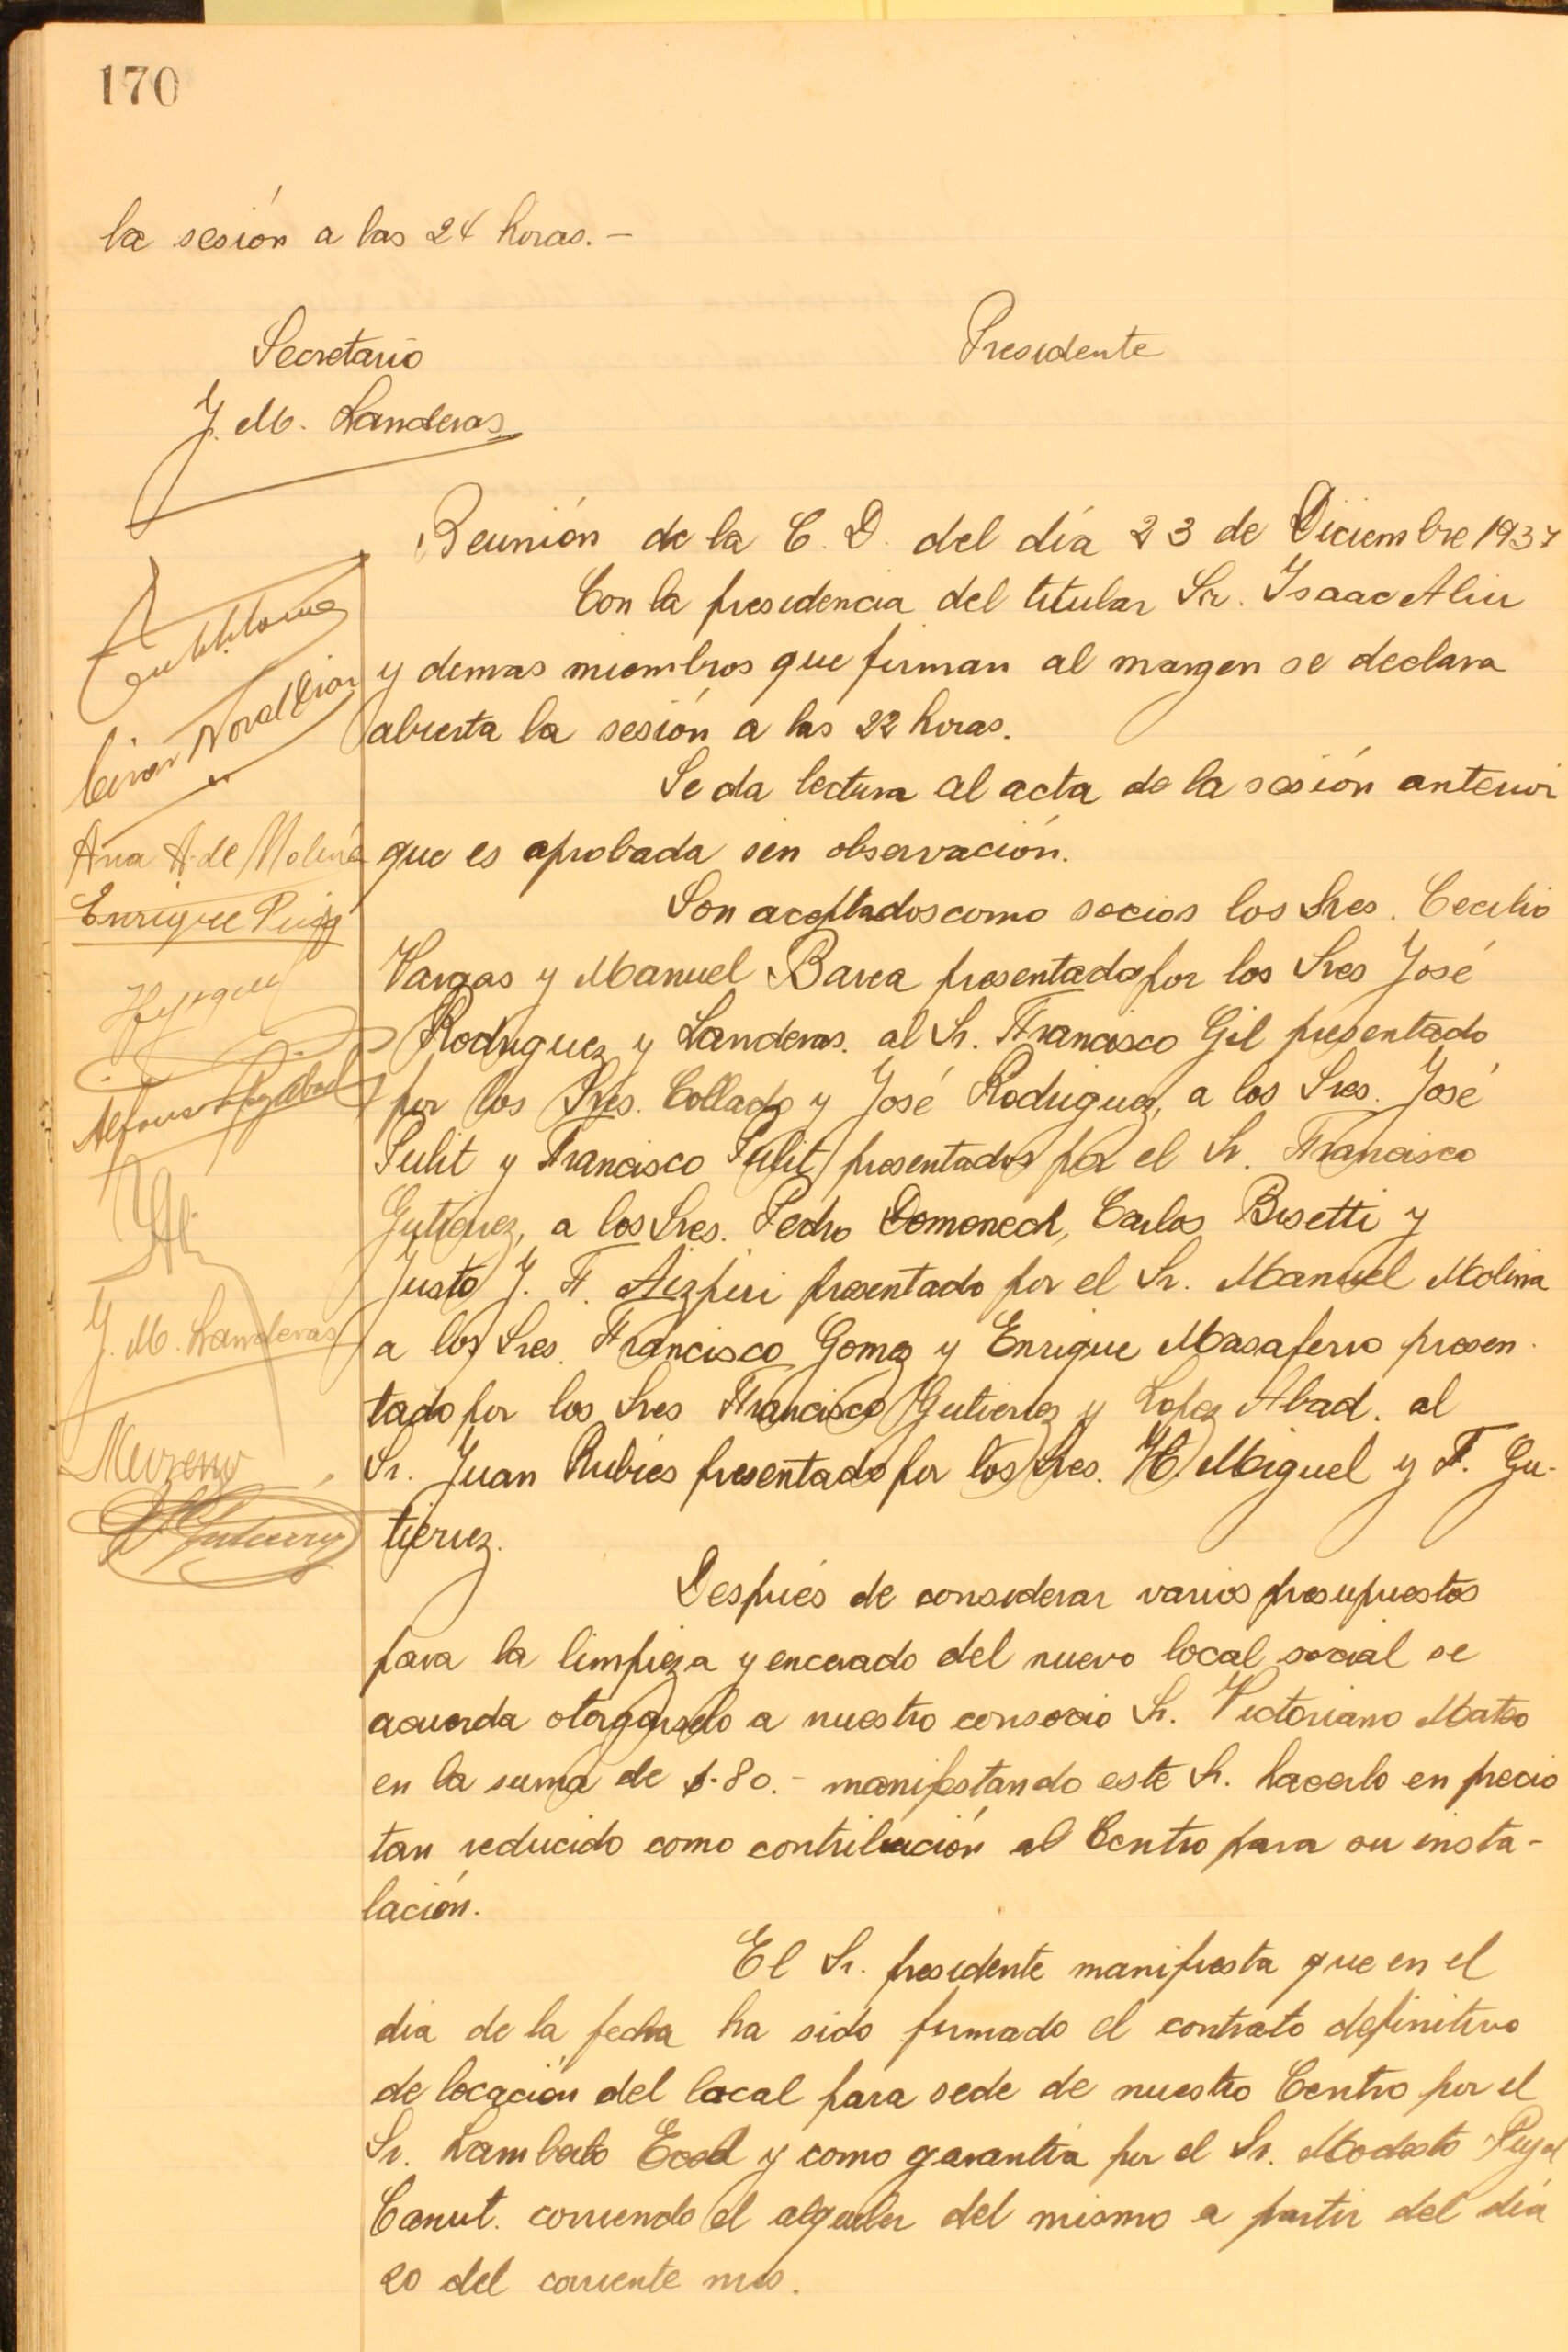 170
la sesión a las 24 horas.-
Secretario
Presidente
J. M. Landeras
Reunión de la C. D. del día 23 de Diciembre 1937
Con la presidencia del titular Sr. Isaac Aliu
y demas miembros que firman al margen se declara
abierta la sesión a las 22 horas.
Se da lectura al acta de la sesión anterior
que es aprobada sin observación.
Ana A. de Molina
Enrique Puig
Son aceptados como socios los Sres. Cecilio
Vargas y Manuel Barea presentado por los Sres José
Rodriguez y Landeras. al Sr. Francisco Gil presentado
por los Sres. Collado y José Rodriguez, a los Sres. José
Pulit y Francisco Pulit presentados por el Sr. Francisco
Gutierrez, a los Sres. Pedro Domenech, Carlos Bisetti y
Justo J. F. Aizpiri presentado por el Sr. Manuel Molina
a los Sres. Francisco Gomez y Enrique Masaferro presen-
tado por los Sres Francisco Gutierrez y Lopez Abad. al
Sr. Juan Rubies presentado por los Sres. H. Miguel y F. Gu-
tierrez.
J. M. Landeras
Moreno
Después de considerar varios presupuestos
para la limpieza y encerado del nuevo local social se
acuerda otorgarselo a nuestro consocio Sr. Victoriano Mateo
en la suma de $.80.- manifestando este Sr. hacerlo en precio
tan reducido como contribución al Centro para su insta-
lación.
El Sr. presidente manifiesta que en el
dia de la fecha ha sido firmado el contrato definitivo
de locación del local para sede de nuestro Centro por el
Sr. Lamberto y como garantía por el Sr. Modesto
Canut. corriendo el alquiler del mismo a partir del día
20 del corriente mes.